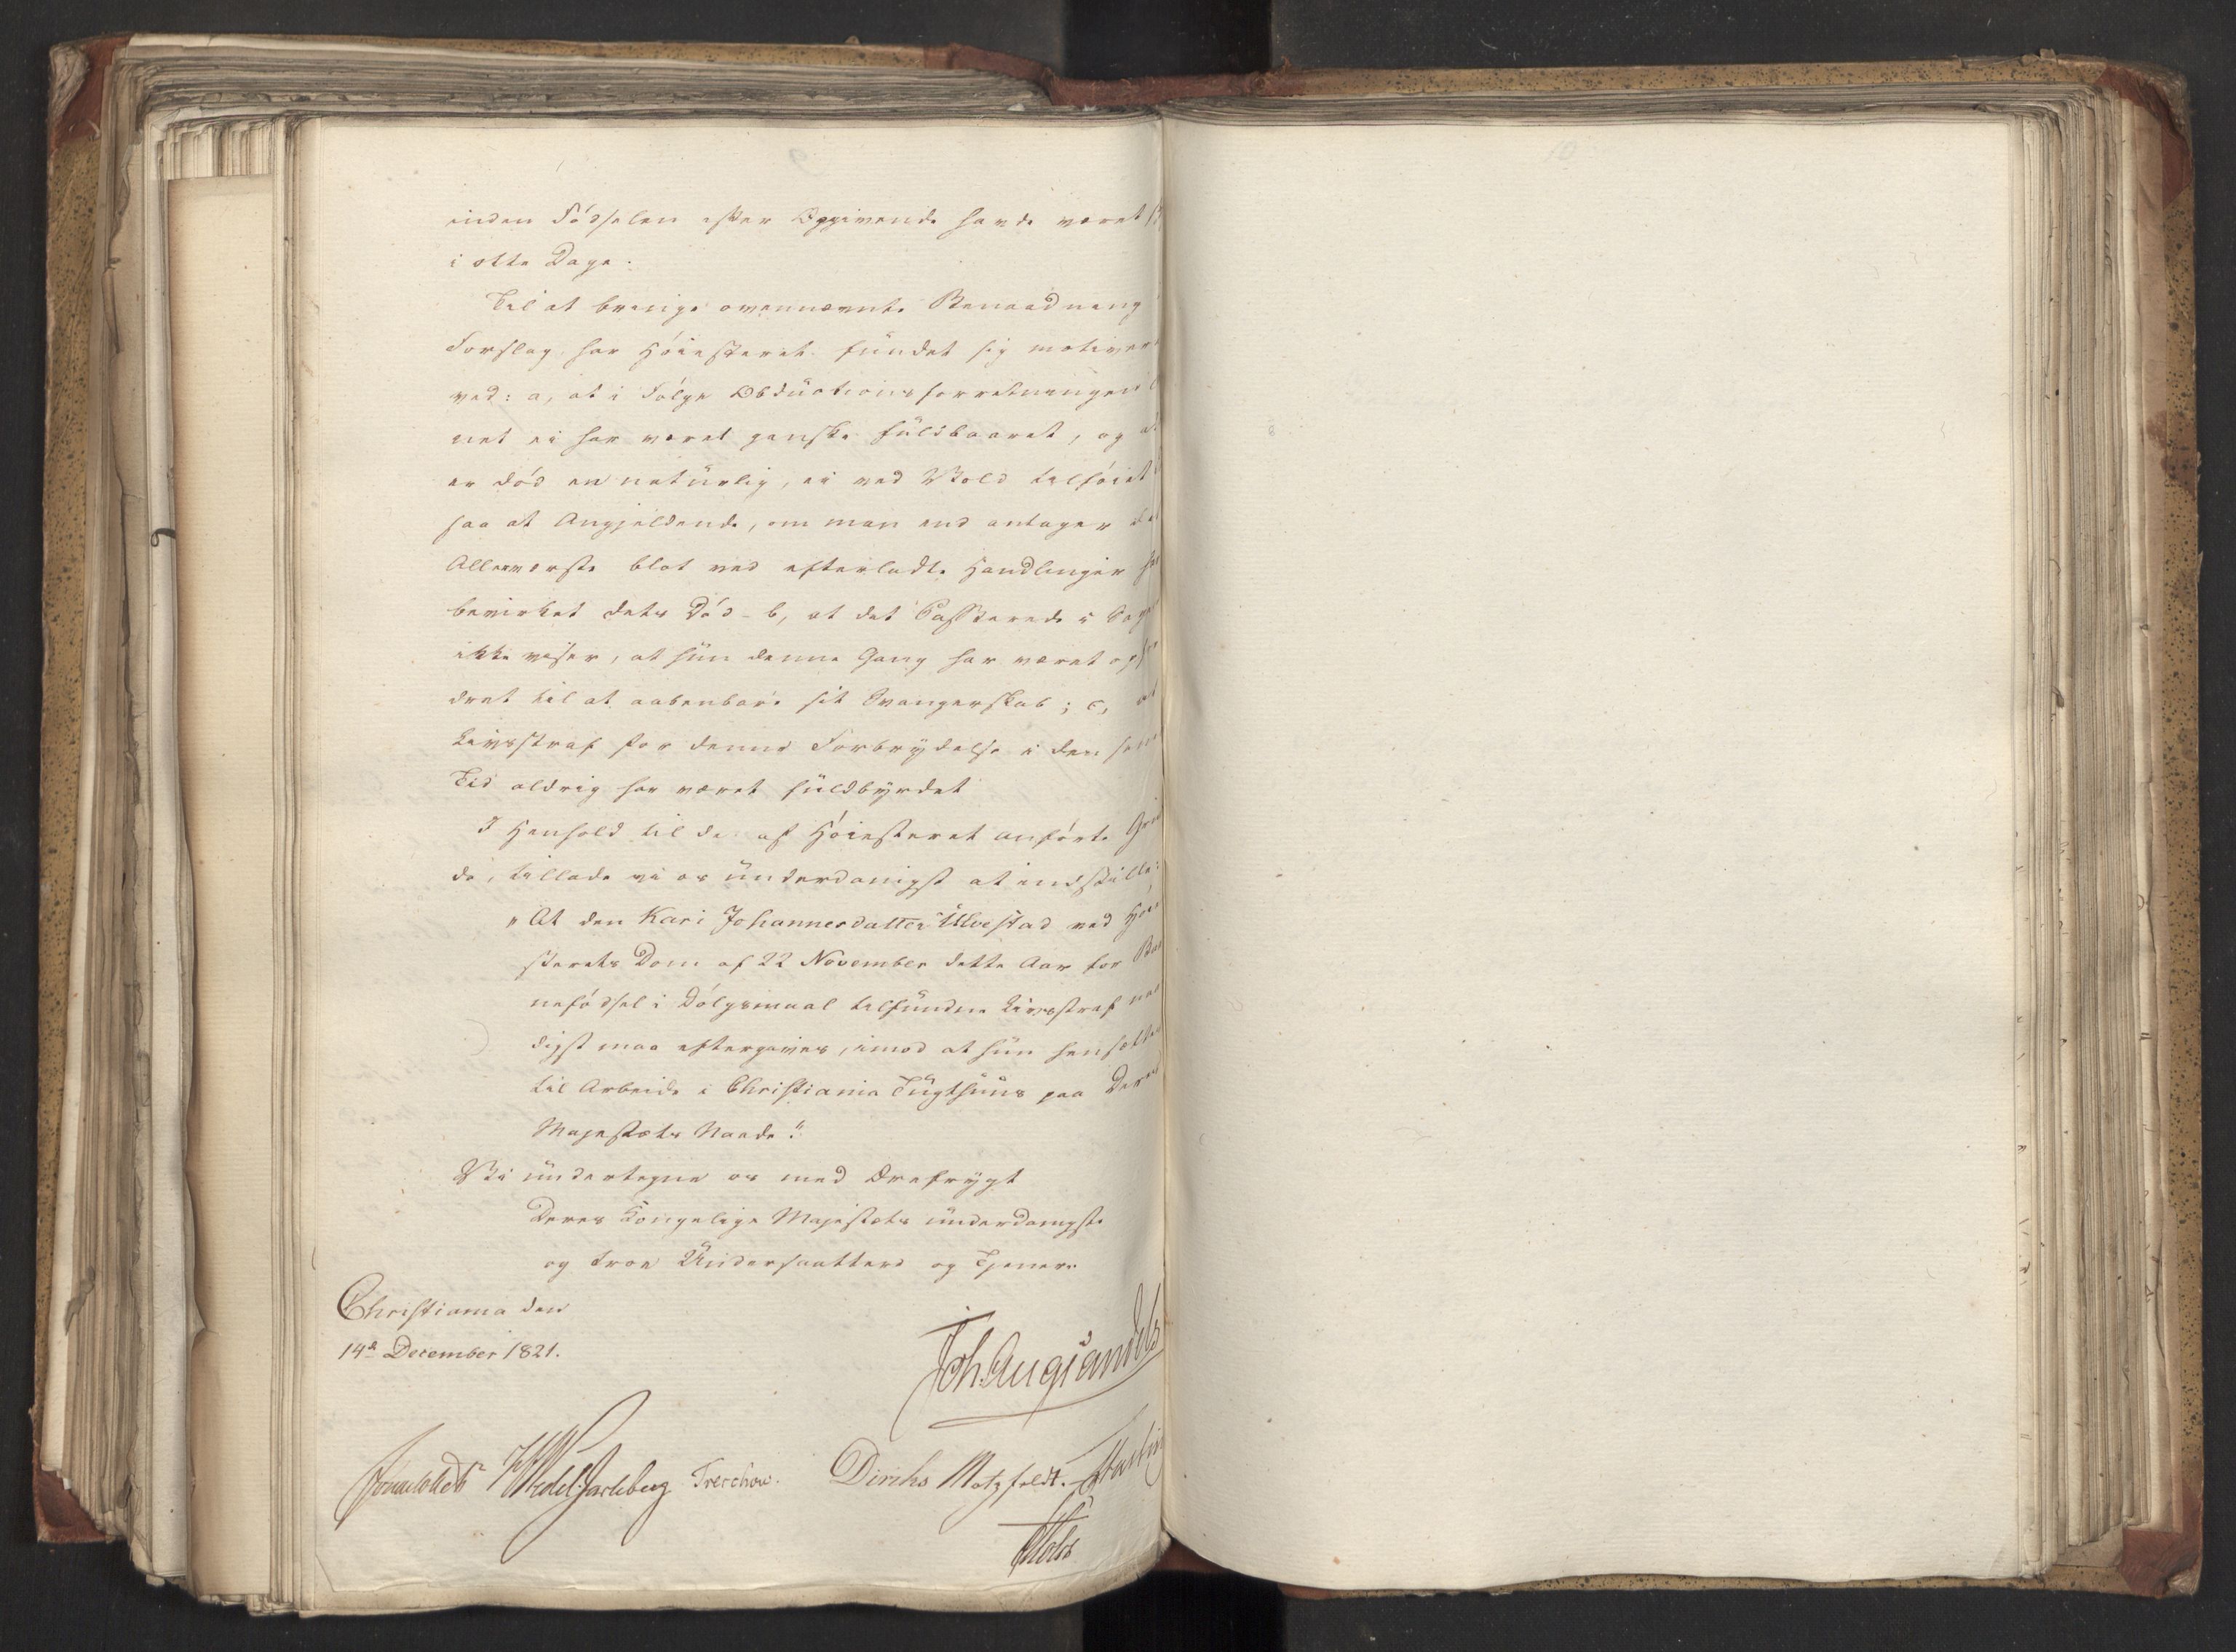 inden Fødselen efter Opgivende havde været
i otte Dage.
Til at bringe ovennævnte Benaadning
Forslag har Høiesteret fundet sig motiver
ved: a, at i Følge Obductionsforretningen
net ei har været ganske fuldbaaret, og at
er død en naturlig, ei ved Vold tilføiet
saa at Angjeldende, om man end antager det
Allerværste blot ved efterladte Handlinger har
bevirket dets Død - b, at det Passerede i Sagen
ikke viser, at hun denne Gang har været opfor
dret til at aabenbare sit Svangerskab; c, at
Livsstraf for denne Forbrydelse i den sene
Tid aldrig har været fuldbyrdet
I Henhold til de af Høiesteret anførte Grün
de, tillade vi os underdanigst at indstille:
"At den Kari Johannesdatter Ulvestad ved Høie
sterets Dom af 22 November dette Aar for Bar
nefødsel i Dølgsmaal tilfundne Livsstraf naa
digst maa eftergives, imod at hun hensættes
til Arbeide i Christiania Tugthuus paa Deres
Majestæts Naade."
Vi undertegne os med Ærefrygt
Deres Kongelige Majestæts underdanigste
og troe Undersaatter og Tjenere
Christiania den
14de December 1821.
Joh. Aug. Sandels
Sommerfeldt HWedel Jarlsberg Treschow. Diriks Motzfeldt.
Holst